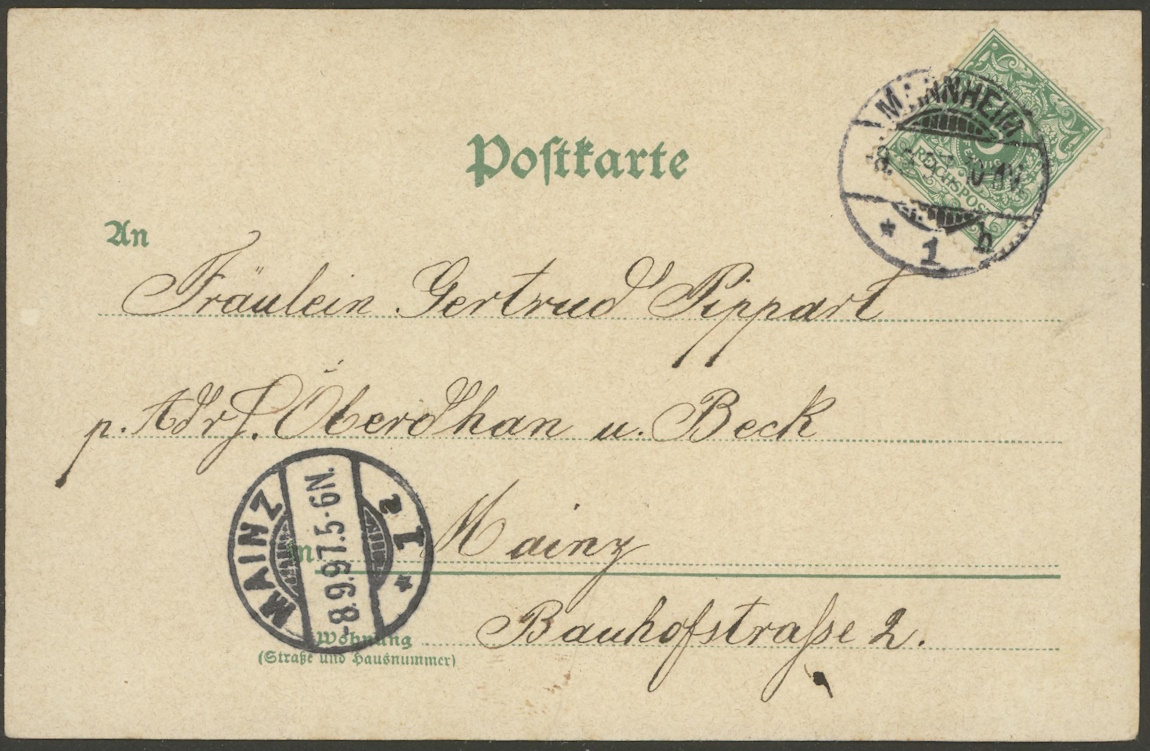 MANNHEIM
-8. 10-11V
* 1 h
REICHSPOST
Postkarte
An
Fräulein Gertrud Pippart
p. Adr. Oberdhan u. Beck
MAINZ
-8.9.97.5-6N.
* 1 z
in Mainz
Bauhofstraße 2.
Wohnung
(Straße und Hausnummer)